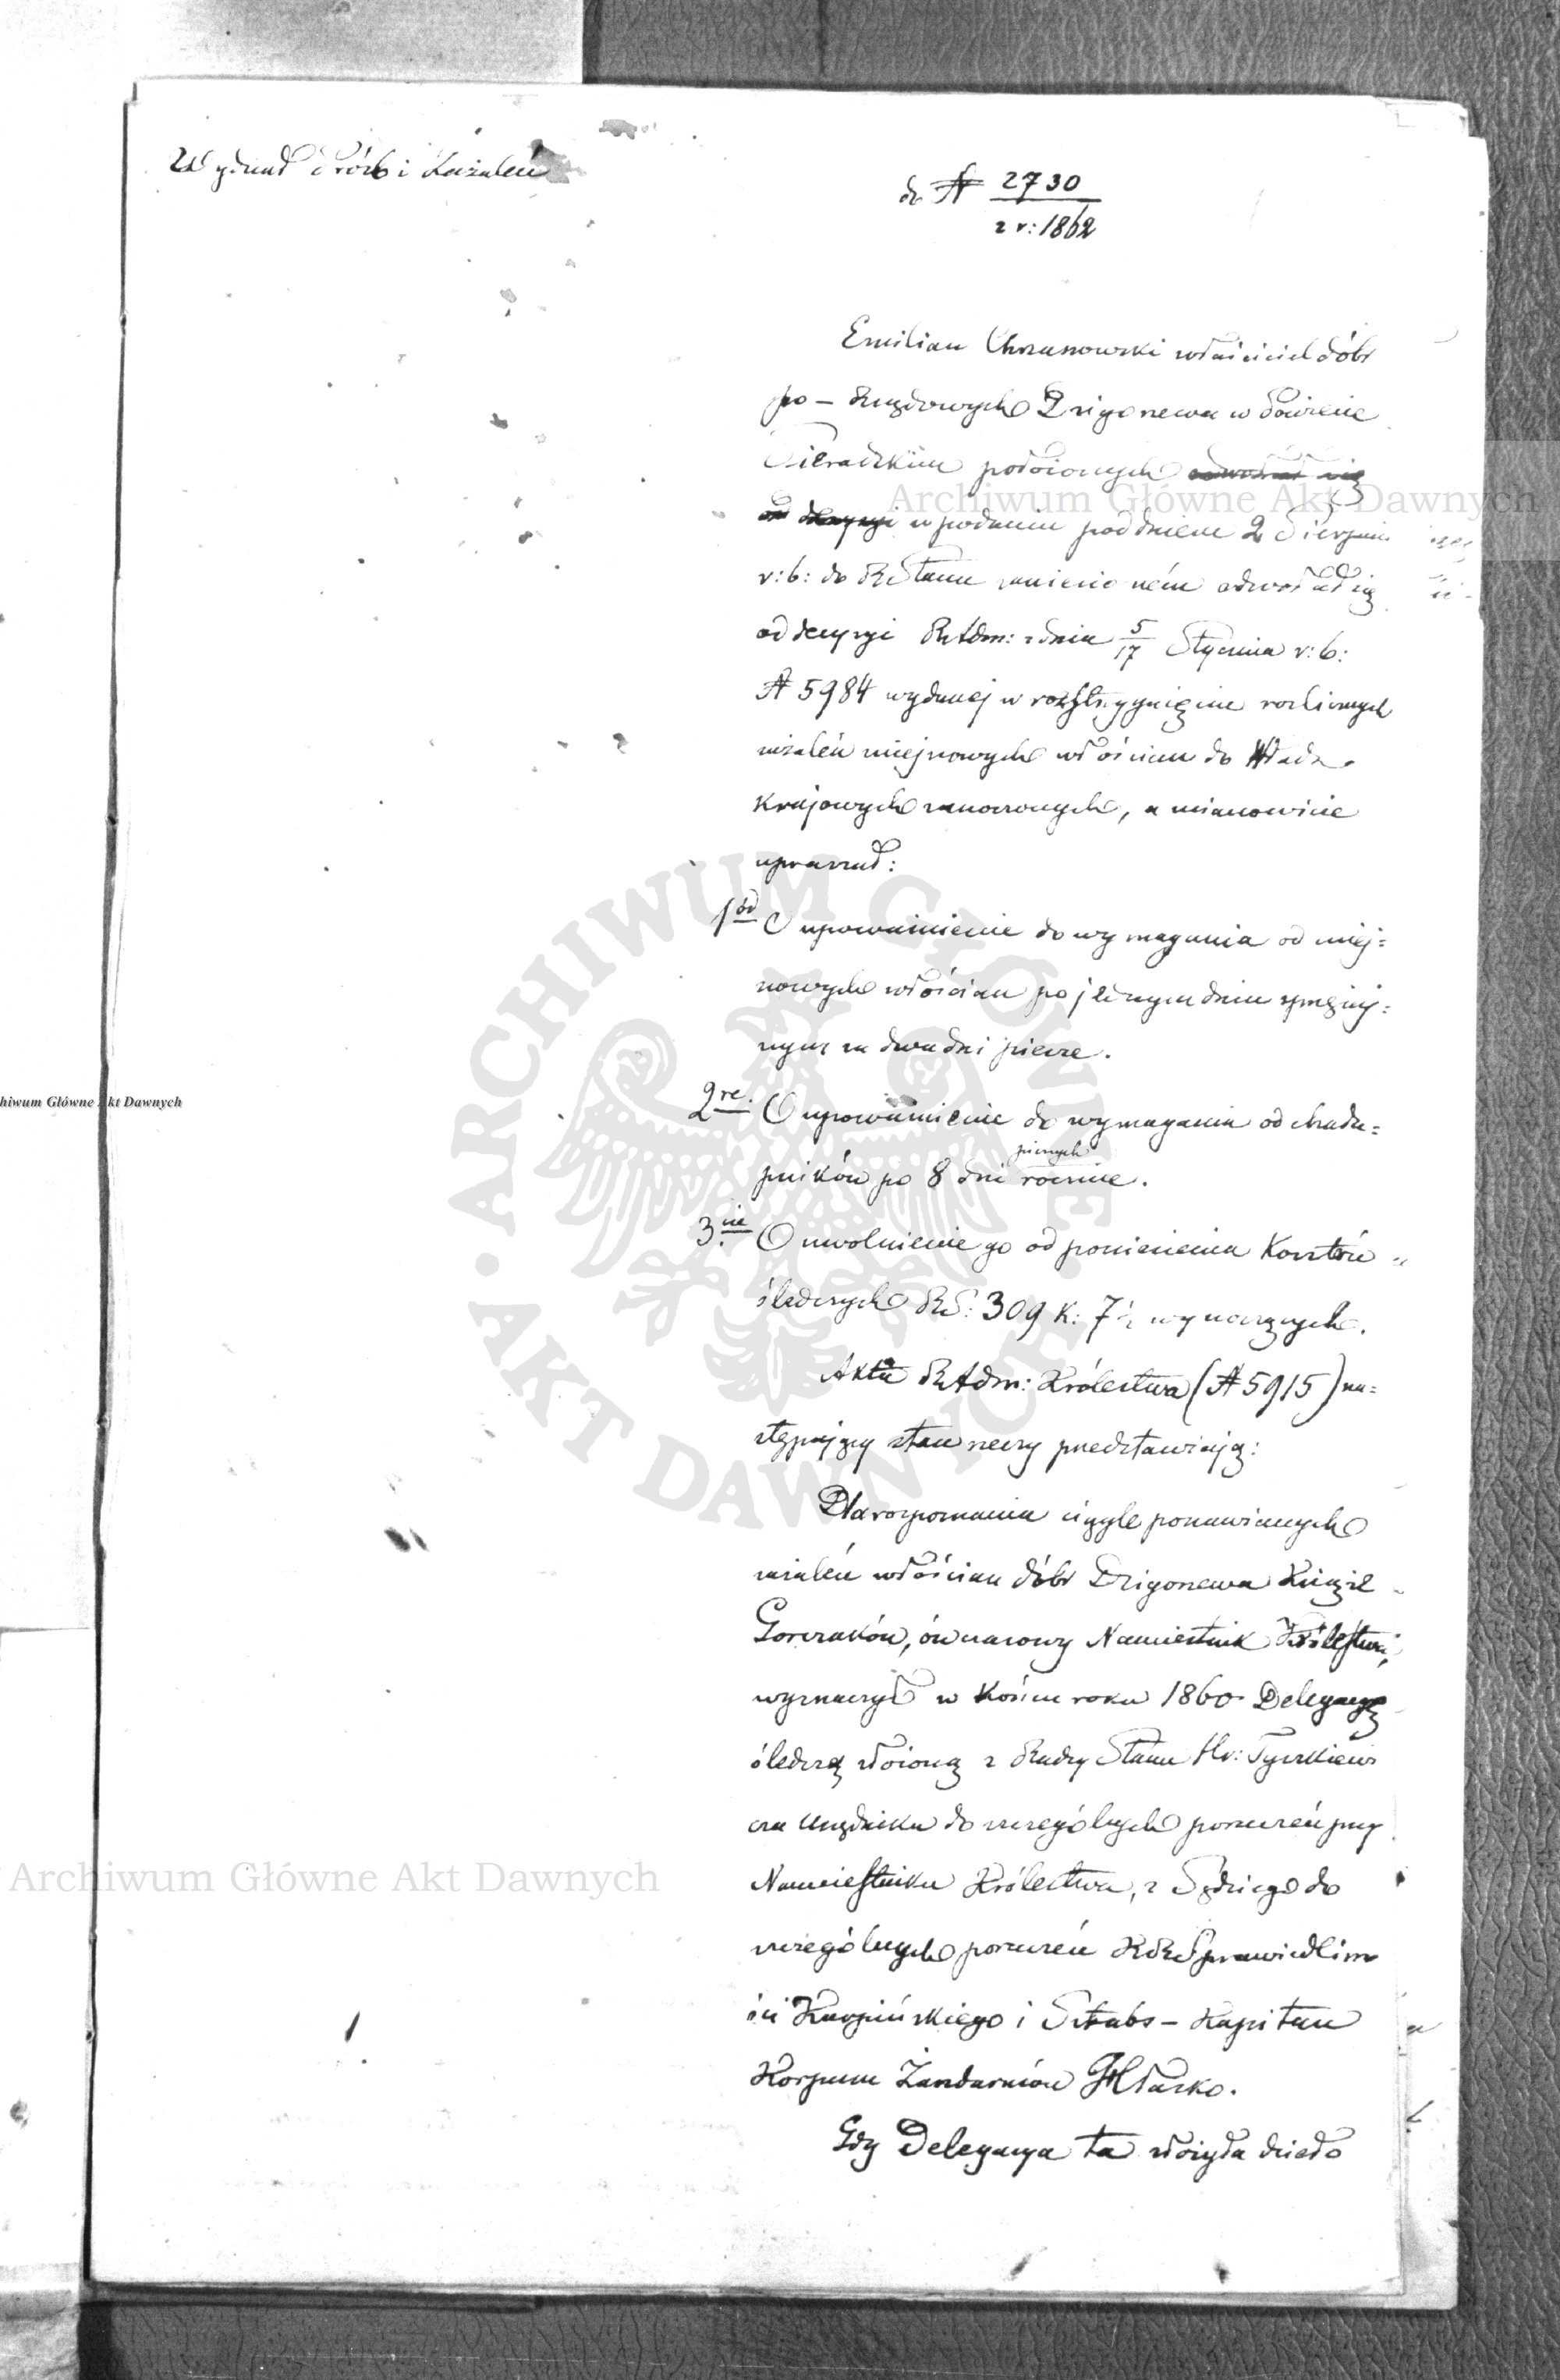 Wydział Próśb i Zażaleń
do № 2730
z r: 1862
Emilian Chrzanowski właściciel dóbr
po-Rządowych Drigonewa w Powiecie
Sieradzkim położonych odwołał się
od decyzyi w podaniu pod dniem 2 Sierpnia
r: b: do RStanu zaniesionem odwołał się
od decyzyi RAdm: z dnia 5/17 Stycznia r: b:
№ 5984 wydanej w rozstrzygnięcie rozlicznych
zażaleń miejscowych włościan do Władz
Krajowych zanoszonych, a mianowicie
upraszał:
1ód O upoważnienie do wymagania od miej=
scowych włościan po jednym dniu sprzężaj=
nym za dwa dni piesze.
2re. O upoważnienie do wymagania od chału=
pników po 8 dni pieszych rocznie.
3cie O uwolnienie go od poniesienia Kosztów
śledczych RS: 309 K: 7½ wynoszących.
Akta RAdm: Królestwa (№ 5915) na=
stępujący stan rzeczy przedstawiają:
Dla rozpoznania ciągle ponawianych
zażaleń włościan dóbr Drigonewa Książe
Gorczaków, ówczasowy Namiestnik Królestwa,
wyznaczył w końcu roku 1860 Delegacyę
śledczą złożoną z Radzy Stanu Hr: Tyszkiewi
cza Urzędnika do szczególnych poruczeń przy
Namiestniku Królestwa, z Sędziego do
szczególnych poruczeń KRSprawiedliwo
ści Karpińskiego i Sztabs-Kapitan
Korpusu Żandarmów Hłasko.
Gdy Delegacya ta złożyła dzieło
Archiwum Główne Akt Dawnych
hiwum Główne Akt Dawnych
ARCHIWUM GŁÓWNE AKT DAWNYCH
Archiwum Główne Akt Dawnych